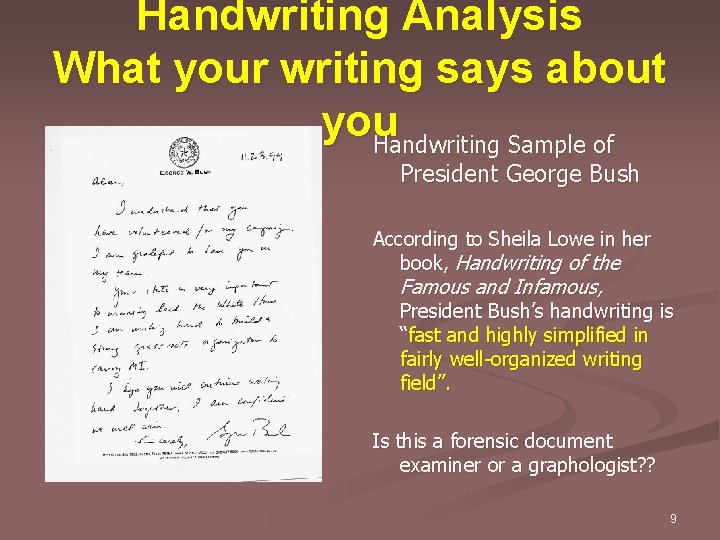 Handwriting Analysis
What your writing says about
you
11.23.99
GEORGE W. BUSH
Alan,
I understand that you
have volunteered for my campaign.
I am grateful to have you on
my team.
Your state is very important
to winning back the White House.
I am working hard to build a
strong grass roots organization to
carry MI.
I hope you will continue working
hard. Together, I am confident
we will win.
Sincerely,
Handwriting Sample of
President George Bush
According to Sheila Lowe in her
book, Handwriting of the
Famous and Infamous,
President Bush’s handwriting is
“fast and highly simplified in
fairly well-organized writing
field”.
Is this a forensic document
examiner or a graphologist??
9